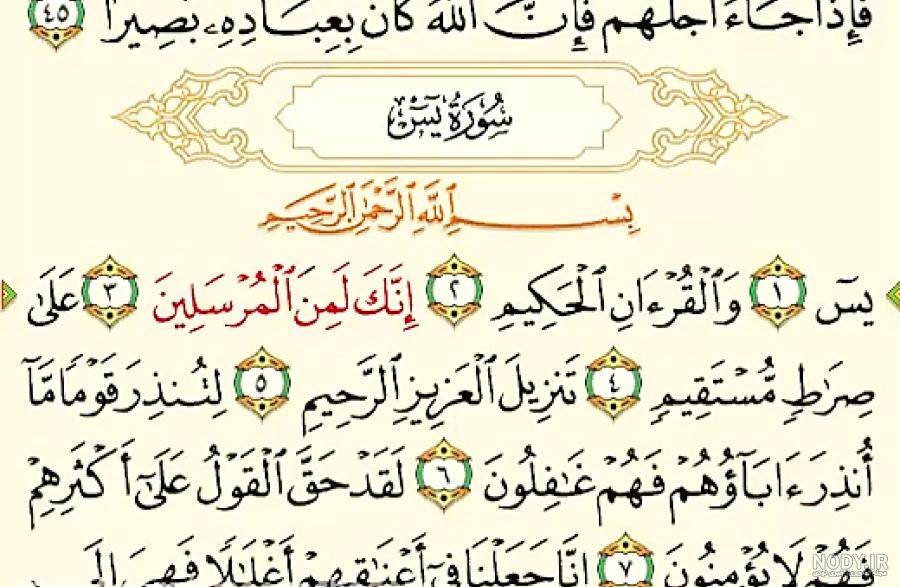 فَإِذَا جَآءَ أَجَلُهُمْ فَإِنَّ ٱللَّهَ كَانَ بِعِبَادِهِۦ بَصِيرًۢا ٤٥
سُورَةُ يسٓ
بِسْمِ ٱللَّهِ ٱلرَّحْمَٰنِ ٱلرَّحِيمِ
يسٓ ١ وَٱلْقُرْءَانِ ٱلْحَكِيمِ ٢ إِنَّكَ لَمِنَ ٱلْمُرْسَلِينَ ٣ عَلَىٰ
صِرَٰطٍ مُّسْتَقِيمٍ ٤ تَنزِيلَ ٱلْعَزِيزِ ٱلرَّحِيمِ ٥ لِتُنذِرَ قَوْمًا مَّآ
أُنذِرَ ءَابَآؤُهُمْ فَهُمْ غَٰفِلُونَ ٦ لَقَدْ حَقَّ ٱلْقَوْلُ عَلَىٰٓ أَكْثَرِهِمْ
فَهُمْ لَا يُؤْمِنُونَ ٧ إِنَّا جَعَلْنَا فِىٓ أَعْنَٰقِهِمْ أَغْلَٰلًا فَهِىَ إِلَى
NODY.IR